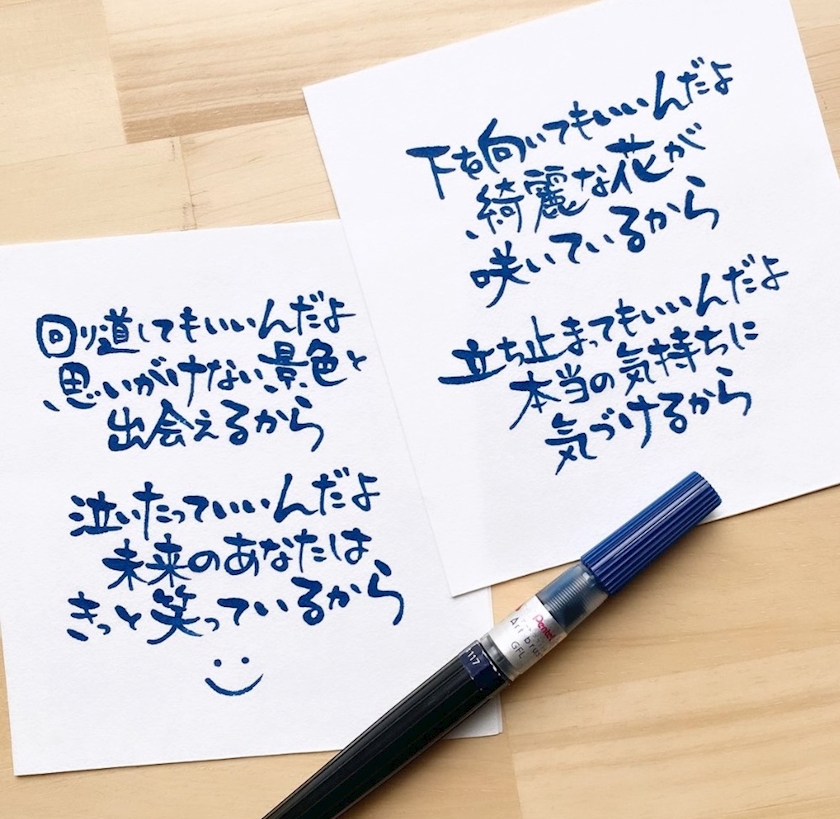 下を向いてもいいんだよ
綺麗な花が
咲いているから
立ち止まってもいいんだよ
本当の気持ちに
気づけるから
回り道してもいいんだよ
思いがけない景色と
出会えるから
泣いたっていいんだよ
未来のあなたは
きっと笑っているから
Pentel
Art brush
GFL
117